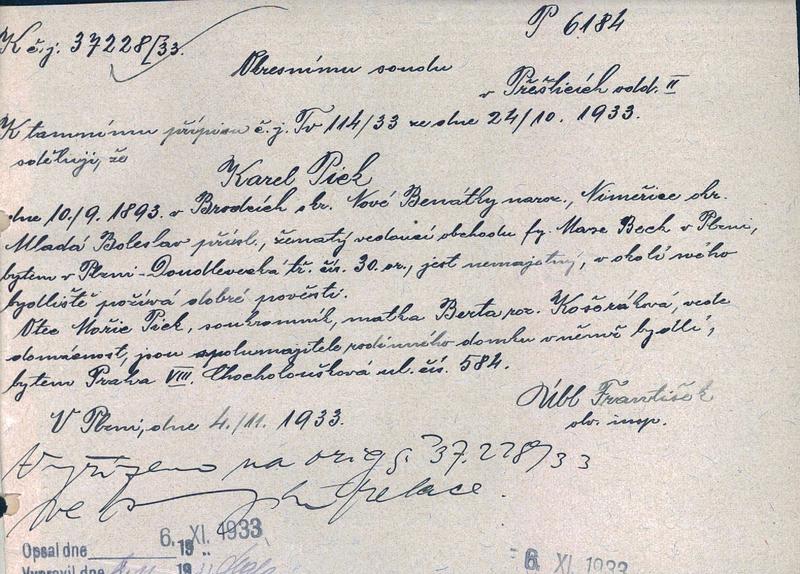 P 6184
K č.j. 37228/33.
Okresnímu soudu
v Přešticích odd. II
K tamnímu přípisu č.j. Tv 114/33 ze dne 24/10. 1933.
sděluji, že
Karel Pick
dne 10./9. 1893. v Brodcích okr. Nové Benátky naroz., Niměřice okr.
Mladá Boleslav přísl., ženatý vedoucí obchodu fy. Maxe Bech v Plzni,
bytem v Plzni-Doudlevecká tř. čís. 30. or., jest nemajetný, v okolí svého
bydliště požívá dobré pověsti.
Otec Mořic Pick, soukromník, matka Berta roz. Košeráková, vede
domácnost, jsou spolumajitele rodinného domku v němž bydlí,
bytem Praha VIII. Chocholouškova ul. čís. 584.
Úbl František
obv. insp.
V Plzni, dne 4./11. 1933.
Vyřízeno na orig č. 37.228/33
ve relace.
6. XI. 1933
Opsal dne 19
Vypravil dne 19
6. XI. 1933